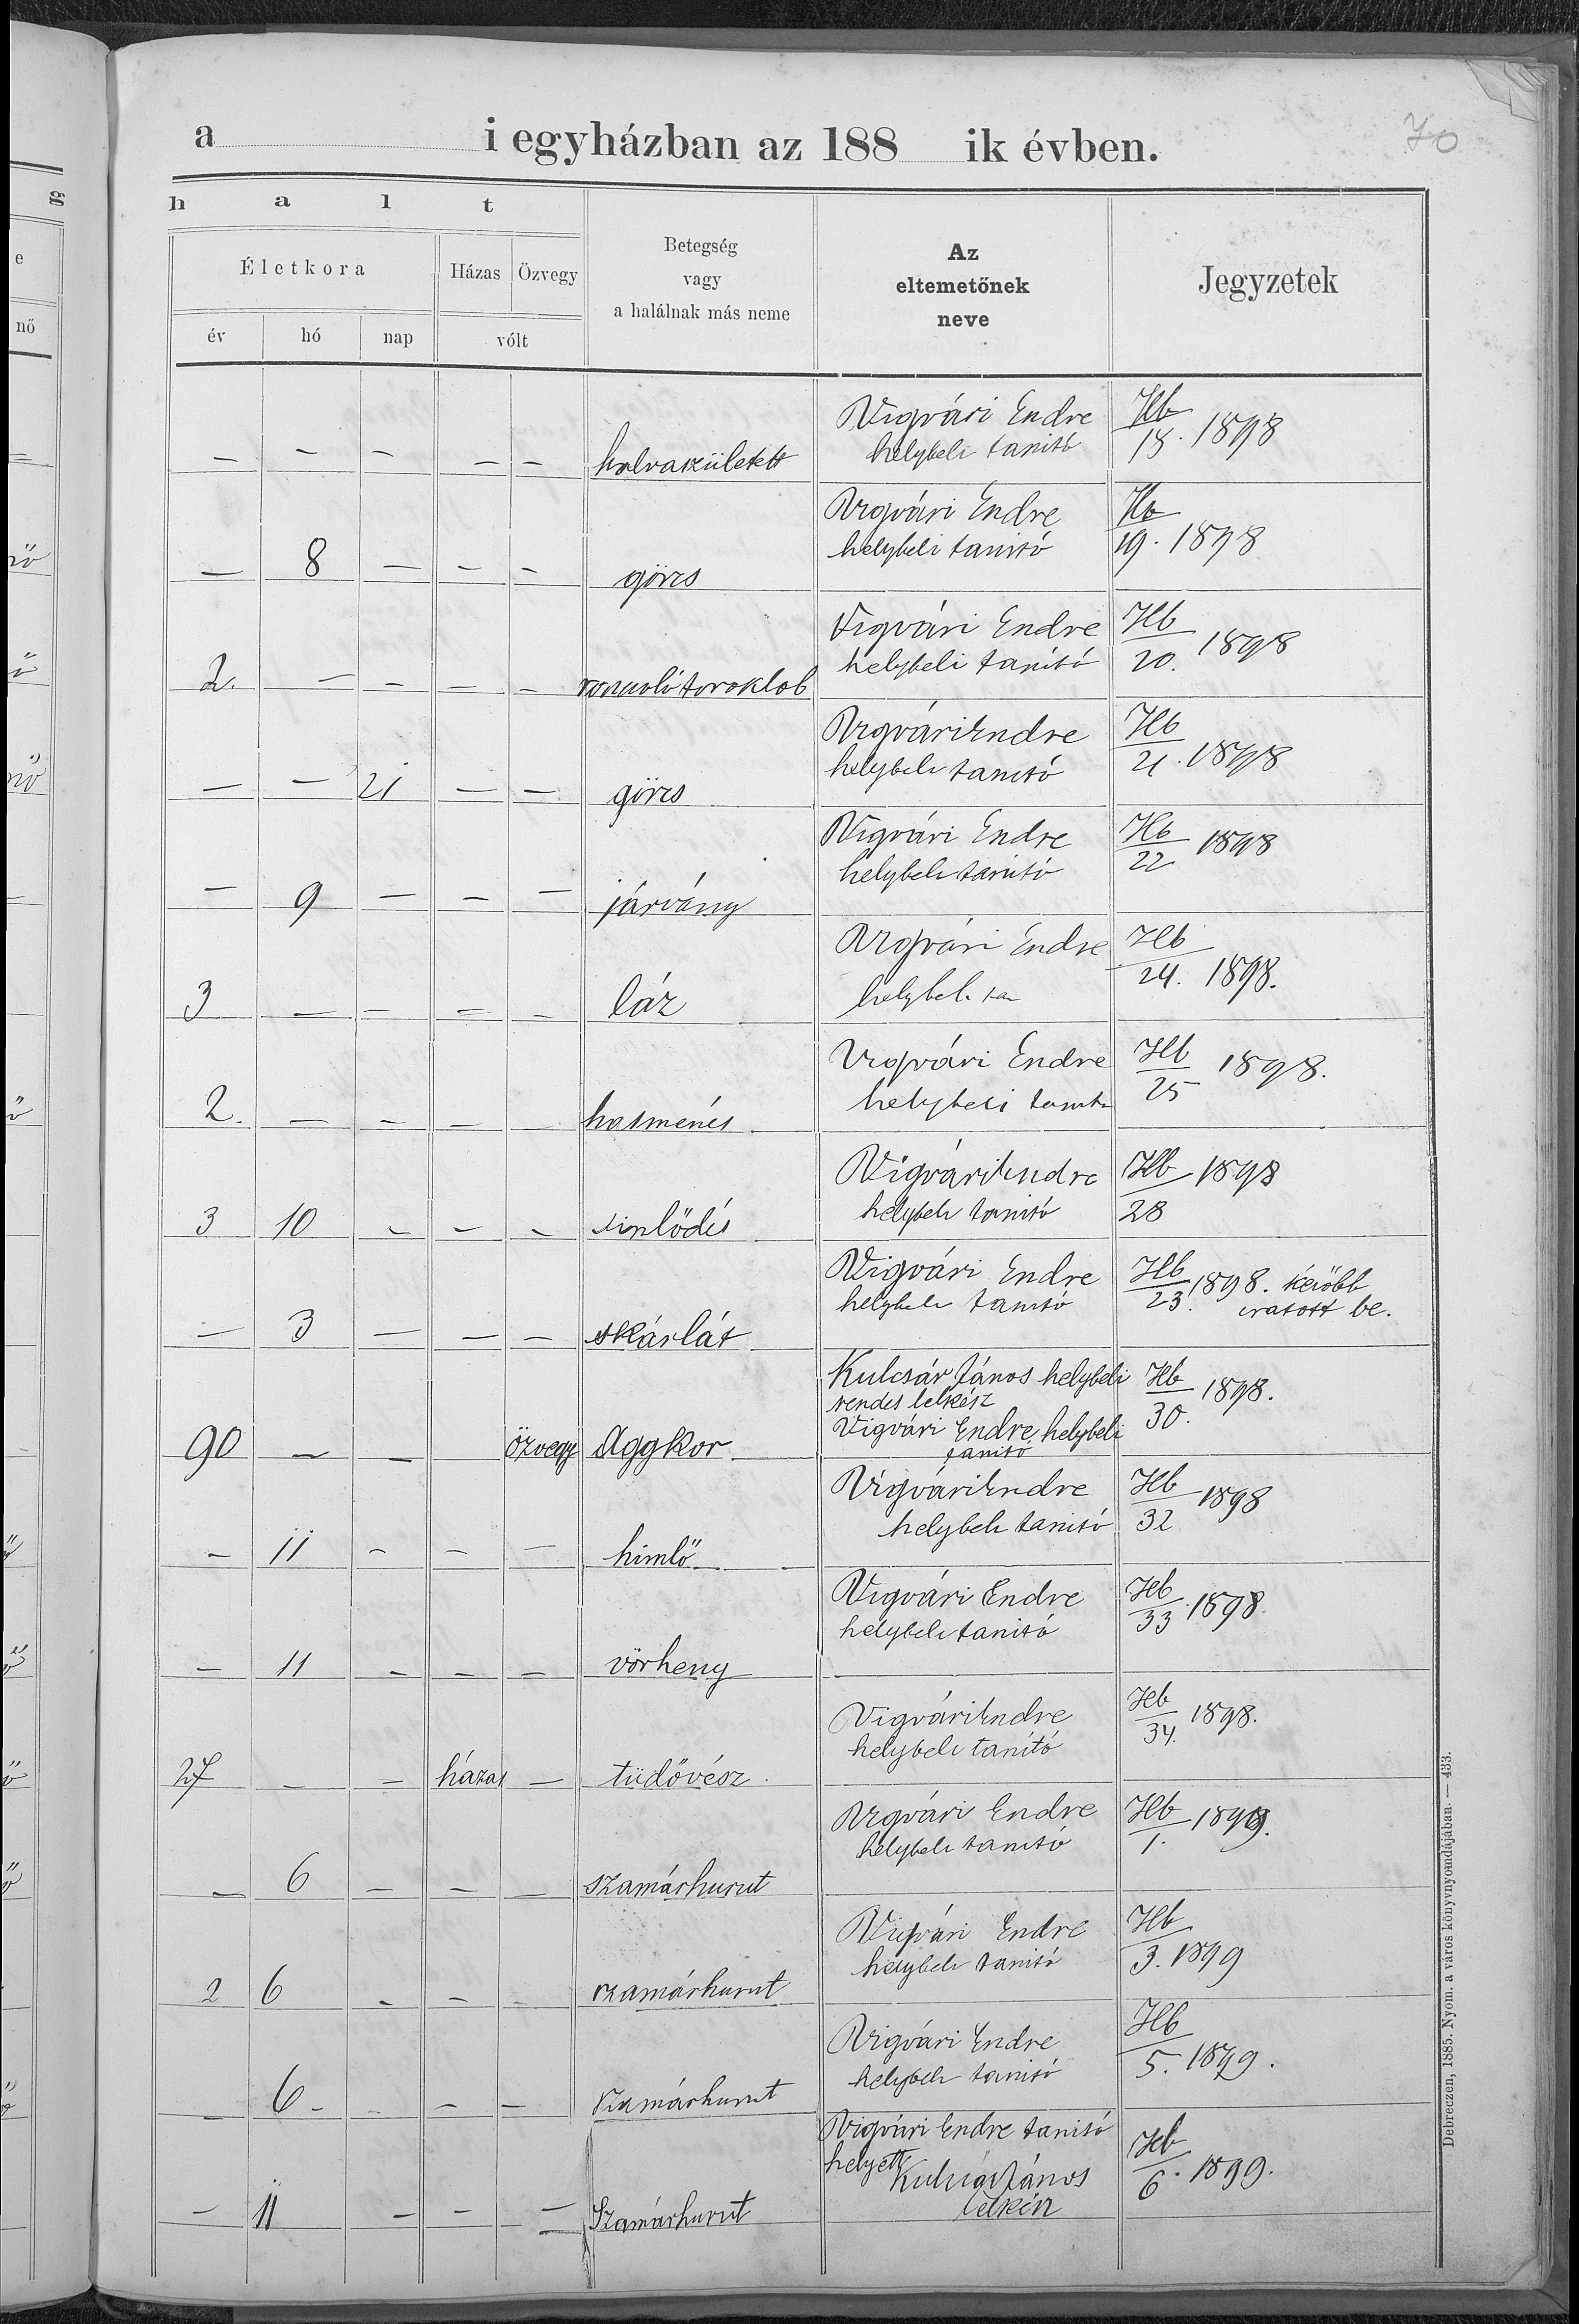 70
a i egyházban az 188 ik évben.
g
h a l t
e
nő
Életkora
Házas Özvegy
Betegség
vagy
a halálnak más neme
Az
eltemetőnek
neve
Jegyzetek
év hó nap vólt
Vigvári Endre Hb
— — — — — halvaszületett helybeli tanitó 18. 1898
Vigvári Endre Hb
helybeli tanitó 19. 1898
— 8 — — — görcs
Vigvári Endre Hb
helybeli tanitó 20. 1898
2. — — — — roncsoló toroklob
Vigvári Endre Hb
helybeli tanitó 21. 1898
— — 21 — — görcs
Vigvári Endre Hb
helybeli tanitó 22 1898
— 9 — — — járvány
Vigvári Endre Hb
24. 1898.
3 — — — — láz helybeli ta
Vigvári Endre Hb 1898.
helybeli tanitó 25
2. — — — — hasmenés
Vigvári Endre Hb 1898
helybeli tanitó 28
3 10 — — — sinlődés
Vigvári Endre Hb 1898. később
helybeli tanitó 23. iratott be.
— 3 — — — skárlát
Kulcsár János helybeli Hb 1898.
rendes lelkész 30.
Vigvári Endre helybeli
tanitó
90 — — özvegy Aggkor
Vigvári Endre Hb 1898
helybeli tanitó 32
— 11 — — — himlő
Vigvári Endre Hb 1898.
helybeli tanitó 33
— 11 — — — vörheny
Vigvári Endre Hb 1898.
helybeli tanító 34.
27 — — házas — tüdővész
Vigvári Endre Hb 1899.
helybeli tanitó 1.
— 6 — — — szamárhurut
Vigvári Endre Hb
helybeli tanitó 3. 1899
2 6 — — szamárhurut
Vigvári Endre Hb
helybeli tanitó 5. 1899.
— 6 — — — szamárhurut
Vigvári Endre tanitó Hb
helyett Kulcsár János 6. 1899.
lelkész
— 11 — — — Szamárhurut
Debreczen, 1885. Nyom. a város könyvnyomdájában. — 433.